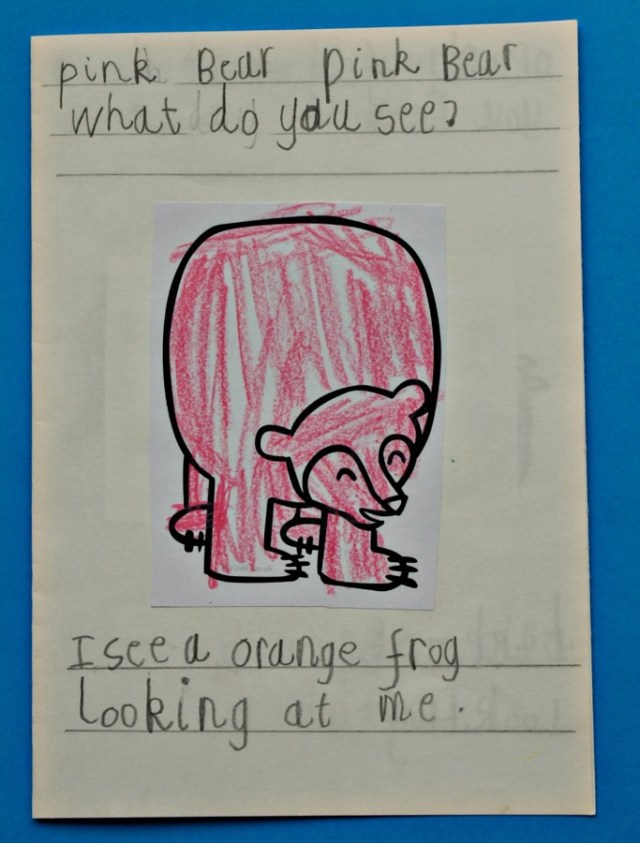 pink Bear pink Bear
what do you see?
I see a orange frog
Looking at me.